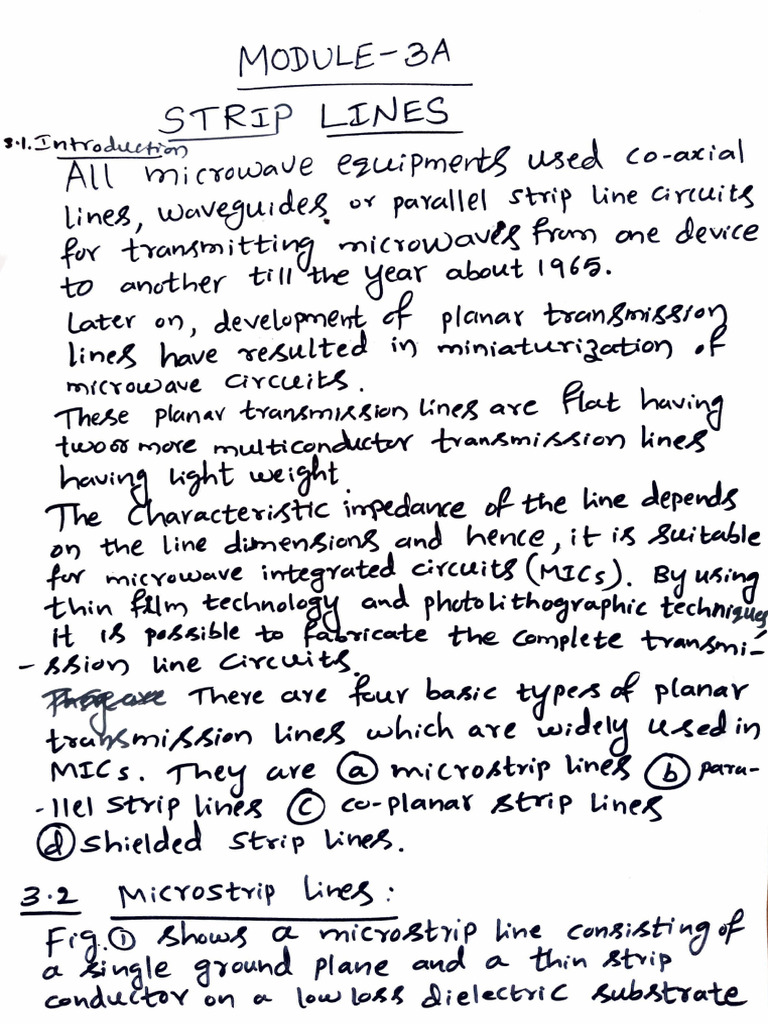 MODULE-3A
STRIP LINES
3.1. Introduction
All microwave equipments used co-axial
lines, waveguides or parallel strip line circuits
for transmitting microwaves from one device
to another till the year about 1965.
Later on, development of planar transmission
lines have resulted in miniaturization of
microwave circuits.
These planar transmission lines are flat having
two or more multiconductor transmission lines
having light weight.
The characteristic impedance of the line depends
on the line dimensions and hence, it is suitable
for microwave integrated circuits (MICs). By using
thin film technology and photolithographic techniques
it is possible to fabricate the complete transmi-
-ssion line circuits.
There are four basic types of planar
transmission lines which are widely used in
MICs. They are (a) microstrip lines (b) para-
-llel strip lines (c) co-planar strip lines
(d) shielded strip lines.
3.2 Microstrip lines:
Fig.① shows a microstrip line consisting of
a single ground plane and a thin strip
conductor on a low loss dielectric substrate